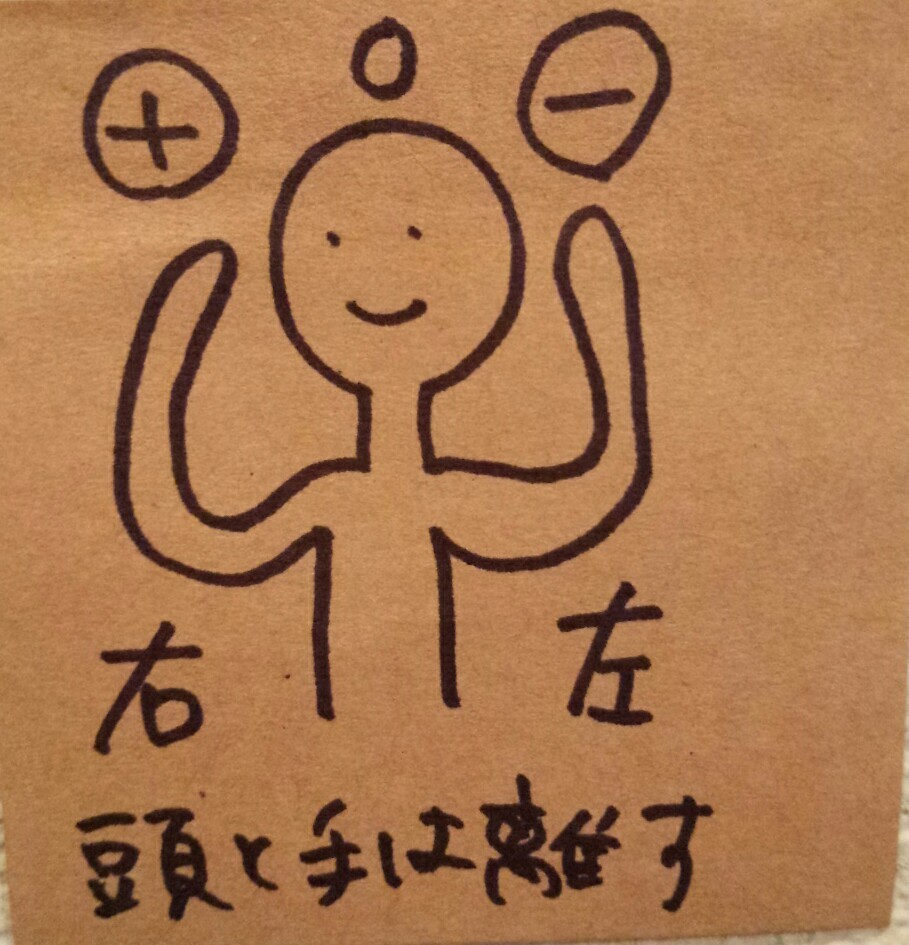 + 0 −
右 左
頭と手は離す